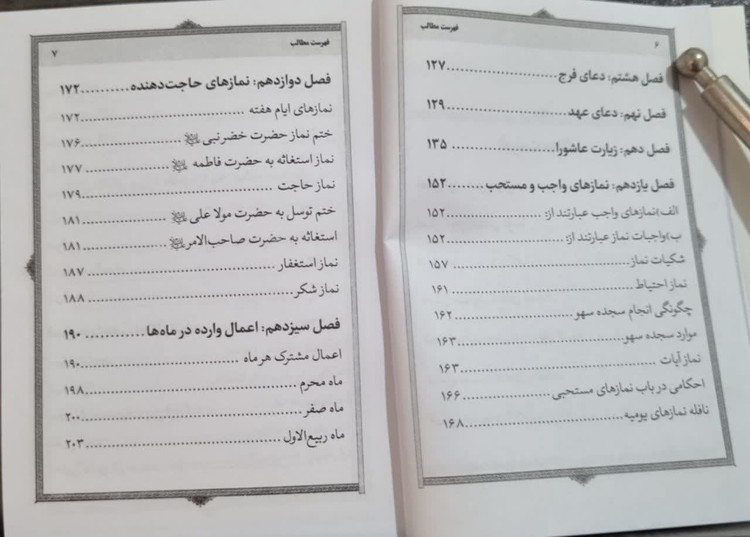 ۶
فهرست مطالب
فصل هشتم: دعای فرج..........................۱۲۷
فصل نهم: دعای عهد..........................۱۲۹
فصل دهم: زیارت عاشورا..........................۱۳۵
فصل یازدهم: نمازهای واجب و مستحب........۱۵۲
الف)نمازهای واجب عبارتند از:..........................۱۵۲
ب)واجبات نماز عبارتند از:..........................۱۵۲
شکیات نماز..........................۱۵۷
نماز احتیاط..........................۱۶۱
چگونگی انجام سجده سهو..........................۱۶۲
موارد سجده سهو..........................۱۶۳
نماز آیات..........................۱۶۳
احکامی در باب نمازهای مستحبی..........................۱۶۶
نافله نمازهای یومیه..........................۱۶۸
فهرست مطالب
۷
فصل دوازدهم: نمازهای حاجت‌دهنده..........۱۷۲
نمازهای ایام هفته..........................۱۷۲
ختم نماز حضرت خضر نبی ..........................۱۷۶
نماز استغاثه به حضرت فاطمه ..........................۱۷۷
نماز حاجت..........................۱۷۹
ختم توسل به حضرت مولا علی ..........................۱۸۱
استغاثه به حضرت صاحب‌الامر ..........................۱۸۱
نماز استغفار..........................۱۸۷
نماز شکر..........................۱۸۸
فصل سیزدهم: اعمال وارده در ماه‌ها............۱۹۰
اعمال مشترک هر ماه..........................۱۹۰
ماه محرم..........................۱۹۸
ماه صفر..........................۲۰۰
ماه ربیع‌الاول..........................۲۰۳